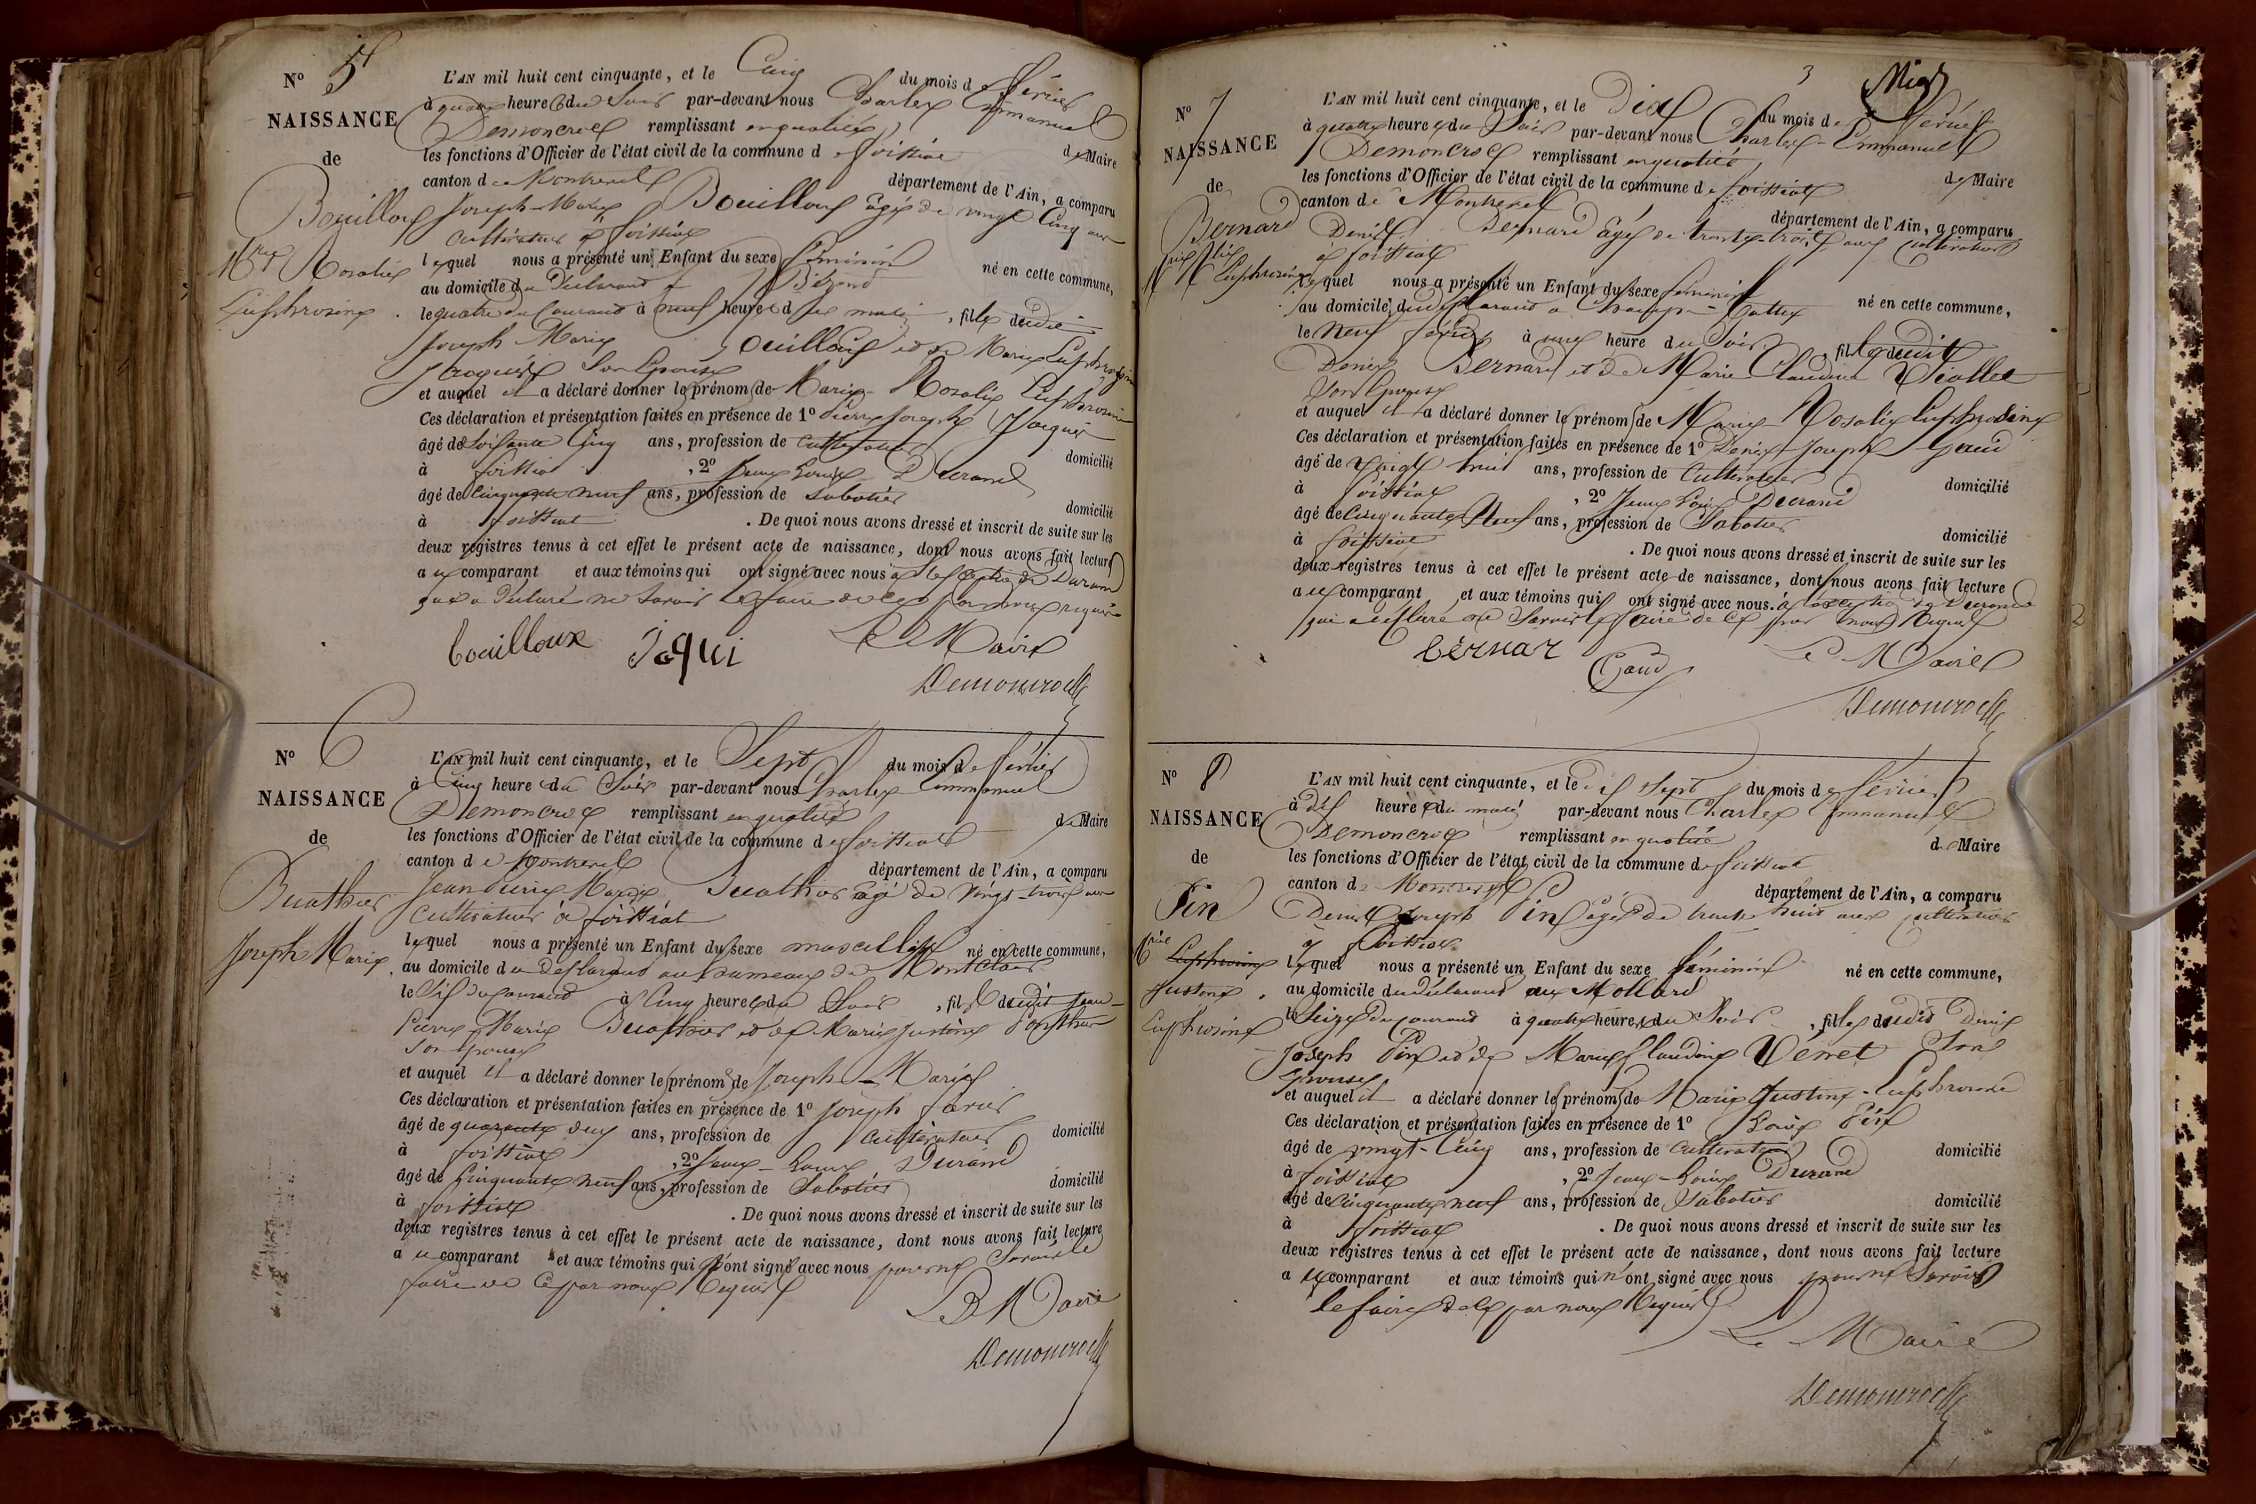 N° 5
NAISSANCE
de
Bouilloux
Mie Rosalie
Euphrosine
L'AN mil huit cent cinquante, et le Cinq du mois de Février
à quatre heures du Soir par-devant nous Charles Emmanuel
Demoncroel remplissant en qualité de Maire
les fonctions d'Officier de l'état civil de la commune de foissiat
canton de Montrevel département de l'Ain, a comparu
Joseph-Marie Bouilloux âgé de vingt Cinq ans
Cultivateur à foissiat
lequel nous a présenté un Enfant du sexe féminin né en cette commune,
au domicile du Déclarant à
le quatre du Courant à neuf heures du matin, fille dudit
Joseph Marie Bouilloux et de Marie Euphrosine
Jacquis Son Epouse
et auquel il a déclaré donner les prénoms de Marie-Rosalie Euphrosine
Ces déclaration et présentation faites en présence de 1° Pierre Joseph Jacquis
âgé de Soixante Cinq ans, profession de Cultivateur domicilié
à foissiat, 2° Jean Louis Durand
âgé de Cinquante neuf ans, profession de Sabotier domicilié
à foissiat. De quoi nous avons dressé et inscrit de suite sur les
deux registres tenus à cet effet le présent acte de naissance, dont nous avons fait lecture
au comparant et aux témoins qui ont signé avec nous à l'exception de Durand
qui a Déclaré ne Savoir le faire de ce par nous requis
bouilloux Jaqui Le Maire
Demoncroel
N° 6
NAISSANCE
de
Buathier
Joseph Marie
L'AN mil huit cent cinquante, et le Sept du mois de Février
à Cinq heures du Soir par-devant nous Charles Emmanuel
Demoncroel remplissant en qualité de Maire
les fonctions d'Officier de l'état civil de la commune de foissiat
canton de Montrevel département de l'Ain, a comparu
Jean Pierre Marie Buathier âgé de vingt-trois ans
Cultivateur à foissiat
lequel nous a présenté un Enfant du sexe masculin né en cette commune,
au domicile du Déclarant au hameau de
le Six du Courant à Cinq heures du Soir, fils dudit Jean-
Pierre Marie Buathier et de Marie Justine
Son Epouse
et auquel il a déclaré donner les prénoms de Joseph-Marie
Ces déclaration et présentation faites en présence de 1° Joseph
âgé de quarante deux ans, profession de Cultivateur domicilié
à foissiat, 2° Jean-Louis Durand
âgé de Cinquante neuf ans, profession de Sabotier domicilié
à foissiat. De quoi nous avons dressé et inscrit de suite sur les
deux registres tenus à cet effet le présent acte de naissance, dont nous avons fait lecture
au comparant et aux témoins qui n'ont signé avec nous pour ne Savoir le
faire de Ce par nous Requis
Le Maire
Demoncroel
3
N° 7
NAISSANCE
de
Bernard
Euphrosine
L'AN mil huit cent cinquante, et le Dix du mois de Février
à quatre heures du Soir par-devant nous Charles-Emmanuel
Demoncroel remplissant en qualité de Maire
les fonctions d'Officier de l'état civil de la commune de foissiat
canton de Montrevel département de l'Ain, a comparu
Denis Bernard âgé de trente-trois ans Cultivateur
à foissiat
lequel nous a présenté un Enfant du sexe féminin né en cette commune,
au domicile du déclarant à
le Neuf février à heure du Soir, fille dudit
Denis Bernard et de Marie Claudine Viollet
Son Epouse
et auquel il a déclaré donner les prénoms de Marie Rosalie Euphrosine
Ces déclaration et présentation faites en présence de 1° Denis Joseph Gaud
âgé de vingt huit ans, profession de Cultivateur domicilié
à foissiat, 2° Jean Louis Durand
âgé de Cinquante Neuf ans, profession de Sabotier domicilié
à foissiat. De quoi nous avons dressé et inscrit de suite sur les
deux registres tenus à cet effet le présent acte de naissance, dont nous avons fait lecture
au comparant et aux témoins qui ont signé avec nous à l'exception de Durand
qui a déclaré ne Savoir le faire de Ce par nous Requis
bérnar Gaud Le Maire
Demoncroel
N° 8
NAISSANCE
de
Pin
Mie Euphrosine
Justine
Euphrosine
L'AN mil huit cent cinquante, et le dix Sept du mois de février
à dix heures du matin par-devant nous Charles Emmanuel
Demoncroel remplissant en qualité de Maire
les fonctions d'Officier de l'état civil de la commune de foissiat
canton de Montrevel département de l'Ain, a comparu
Denis Joseph Pin âgé de trente huit ans Cultivateur
à foissiat
lequel nous a présenté un Enfant du sexe féminin né en cette commune,
au domicile du déclarant aux Mollard
le Seize du Courant à quatre heures du Soir, fille dudit Denis
Joseph Pin et de Marie Claudine Vérnet Son
Epouse
et auquel il a déclaré donner les prénoms de Marie Justine-Euphrosine
Ces déclaration et présentation faites en présence de 1° Louis Pin
âgé de vingt-Cinq ans, profession de Cultivateur domicilié
à foissiat, 2° Jean-Louis Durand
âgé de Cinquante neuf ans, profession de Sabotier domicilié
à foissiat. De quoi nous avons dressé et inscrit de suite sur les
deux registres tenus à cet effet le présent acte de naissance, dont nous avons fait lecture
au comparant et aux témoins qui n'ont signé avec nous pour ne Savoir
le faire de Ce par nous Requis
Le Maire
Demoncroel